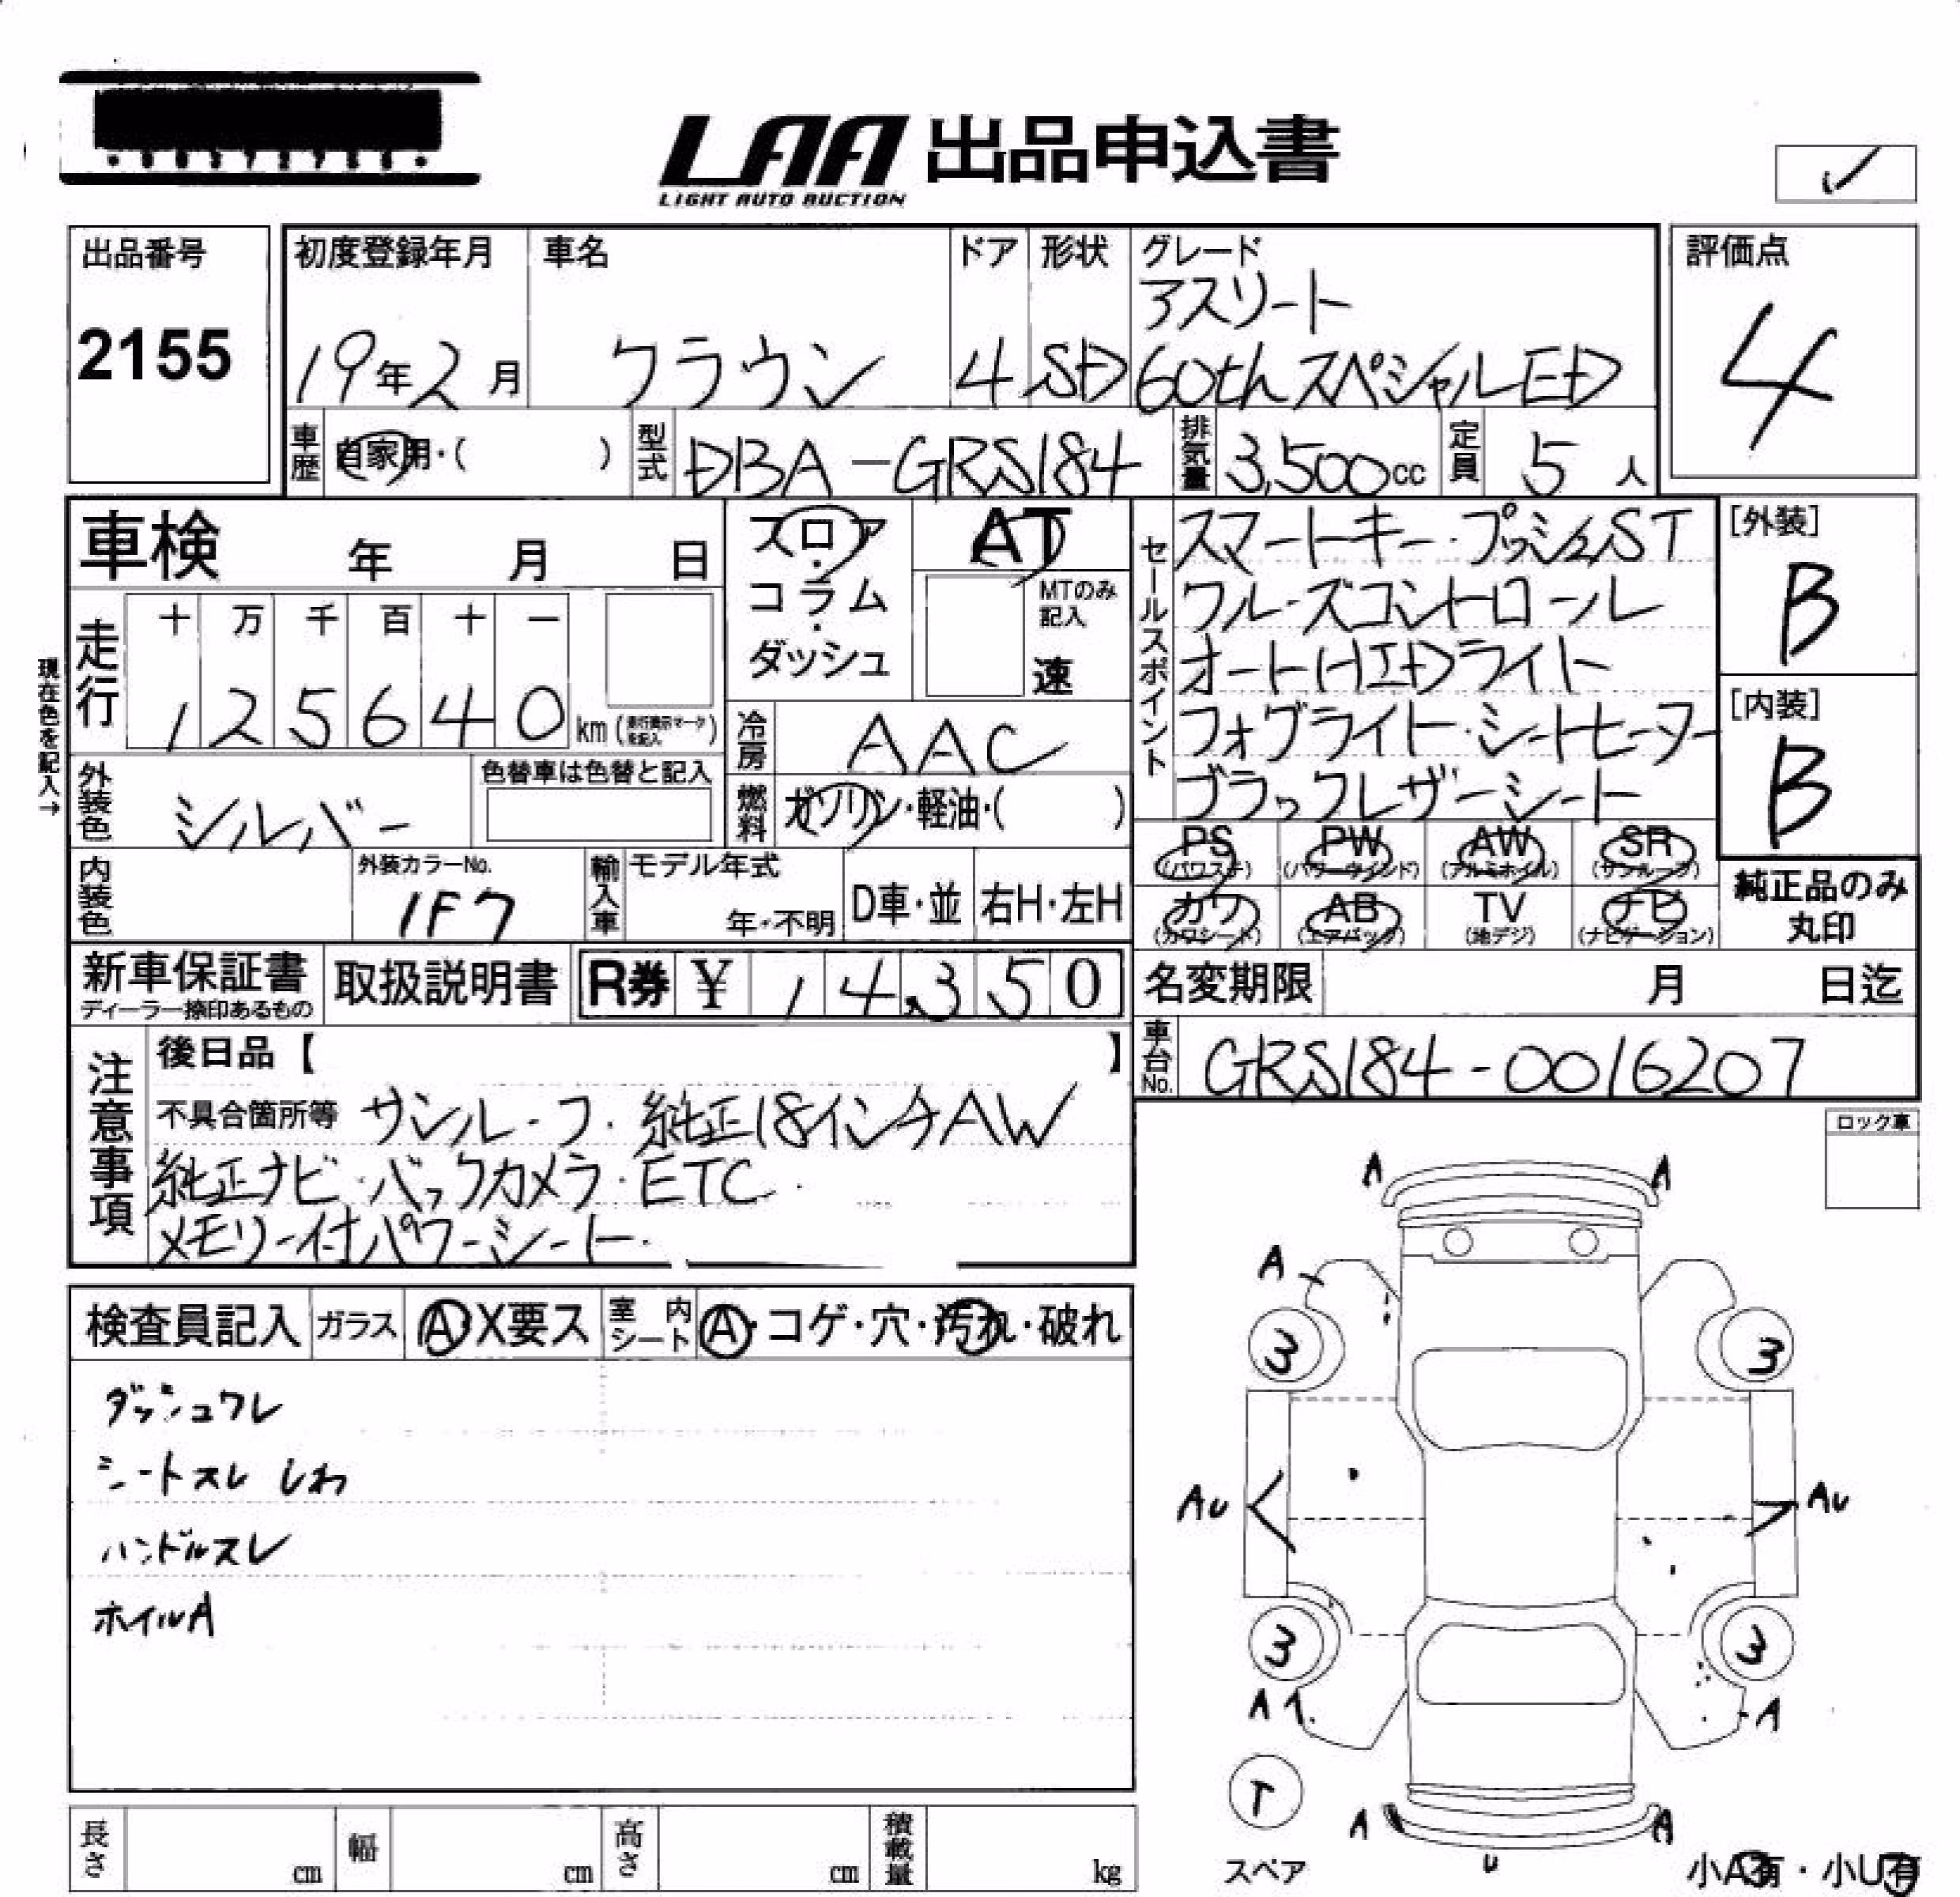 LAA 出品申込書
LIGHT AUTO AUCTION
出品番号
2155
初度登録年月
19年2月
車名
クラウン
ドア
4
形状
SD
グレード
アスリート
60thスペシャルED
評価点
4
車歴
自家用・( )
型式
DBA-GRS184
排気量
3,500cc
定員
5人
車検 年 月 日
フロア・
コラム・
ダッシュ
AT
MTのみ
記入
速
セールスポイント
スマートキー・プッシュST
クルーズコントロール
オートHIDライト
フォグライト・シートヒーター
ブラックレザーシート
[外装]
B
[内装]
B
現在色を記入→
走行
十 万 千 百 十 一
1 2 5 6 4 0 km
冷房
AAC
外装色
シルバー
色替車は色替と記入
燃料
ガソリン・軽油・( )
PS PW AW SR
(パワステ) (パワーウインド) (アルミホイル) (サンルーフ)
カワ AB TV ナビ
(カワシート) (エアバック) (地デジ) (ナビゲーション)
純正品のみ
丸印
内装色
外装カラーNo.
1F7
輸入車
モデル年式
年・不明
D車・並
右H・左H
新車保証書
取扱説明書
R券 ¥ 14,350
名変期限 月 日迄
車台No.
GRS184-0016207
注意事項
後日品【 】
不具合箇所等 サンルーフ・純正18インチAW
純正ナビ・バックカメラ・ETC・
メモリー付パワーシート・
ロック車
検査員記入
ガラス
A・X要ス
室内シート
A・コゲ・穴・汚れ・破れ
ダッシュワレ
シートスレ しわ
ハンドルスレ
ホイルA
A A
A
3 3
AU AU
3 3
A A
T
スペア
A A
U
小A有・小U有
長さ cm
幅 cm
高さ cm
積載量 kg